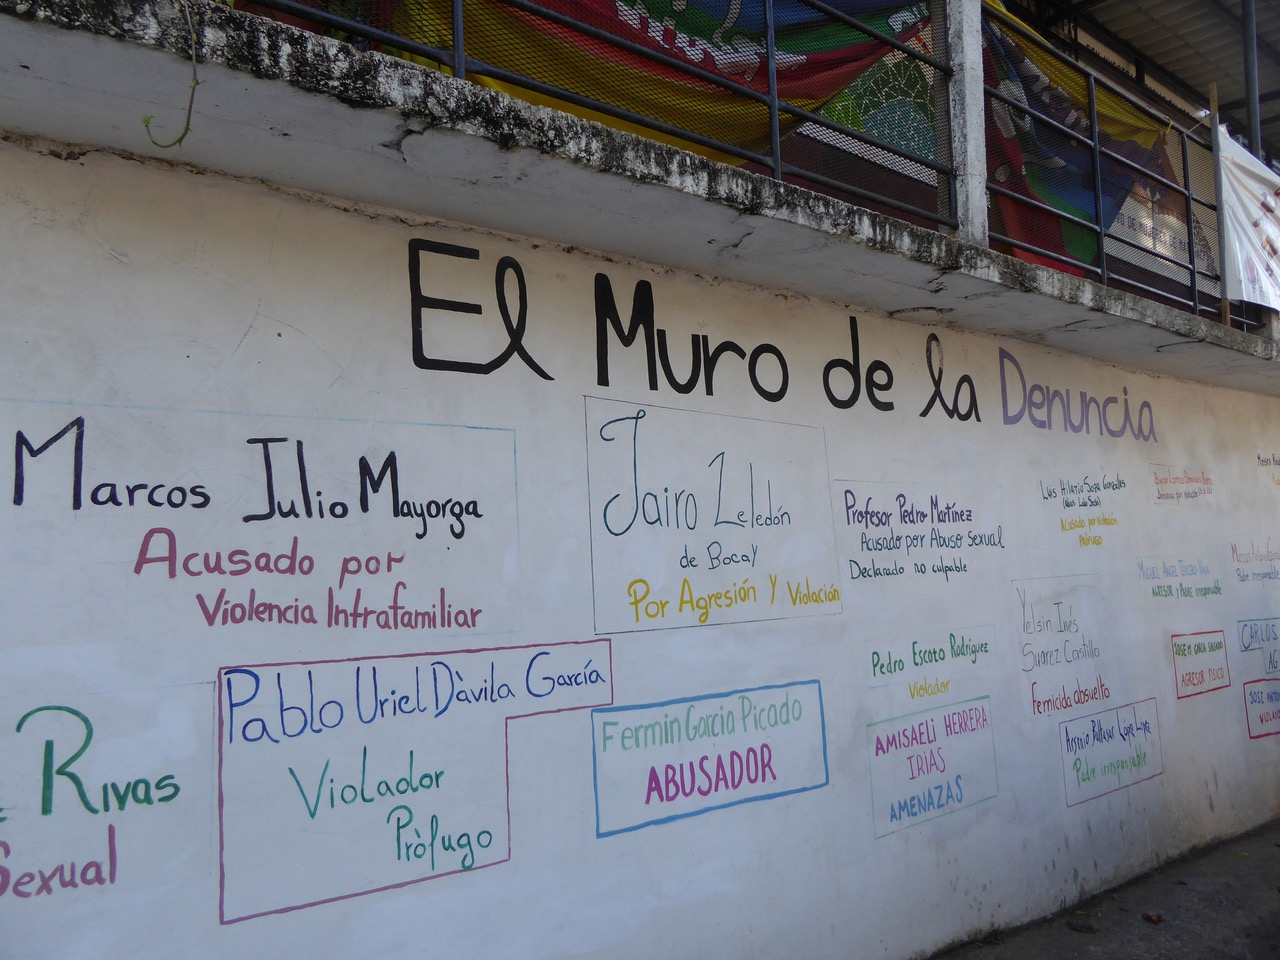 El Muro de la Denuncia
Marcos Julio Mayorga
Acusado por
Violencia Intrafamiliar
Jairo Zeledón
de Bocay
Por Agresión Y Violación
Profesor Pedro Martínez
Acusado por Abuso sexual
Declarado no culpable
Luis Hilario Soza Gonzáles
Acusado por violación
Prófugo
Miguel Angel Tercero
Agresor y Padre irresponsable
Padre irresponsable
Rivas
Sexual
Pablo Uriel Dàvila García
Violador
Pròfugo
Fermin Garcia Picado
ABUSADOR
Pedro Escoto Rodríguez
Violador
AMISAELi HERRERA
IRIAS
AMENAZAS
Yelsin Inés
Suarez Castillo
Femicida absuelto
Arsenio Baltasar Lopez Lopez
Padre irresponsable
AGRESOR FISICO
CARLOS
AG
JOSE ANTO
VIOLAD